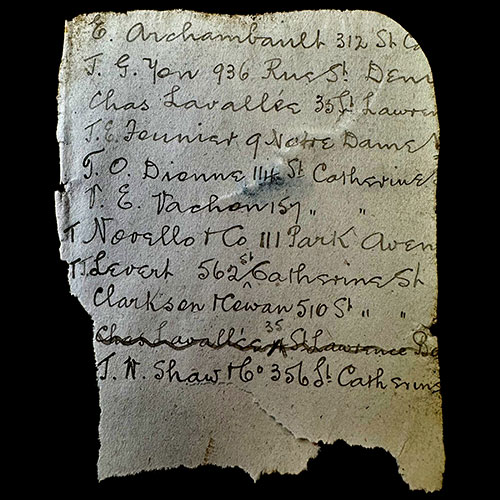 E. Archambault 312 St Ca
J. G. Yon 936 Rue St Deni
Chas Lavallée 35 St Lawren
J. E. Fournier 9 Notre Dame S
J. O. Dionne 114 St Catherine S
V. E. Vachon 157 " "
T Novello & Co 111 Park Aven
T.J. Levert 562 St Catherine St
Clarkson & Cowan 510 St " "
Chas Lavallée 35 St Lawrence Bo
J. W. Shaw & Co 356 St Catherine